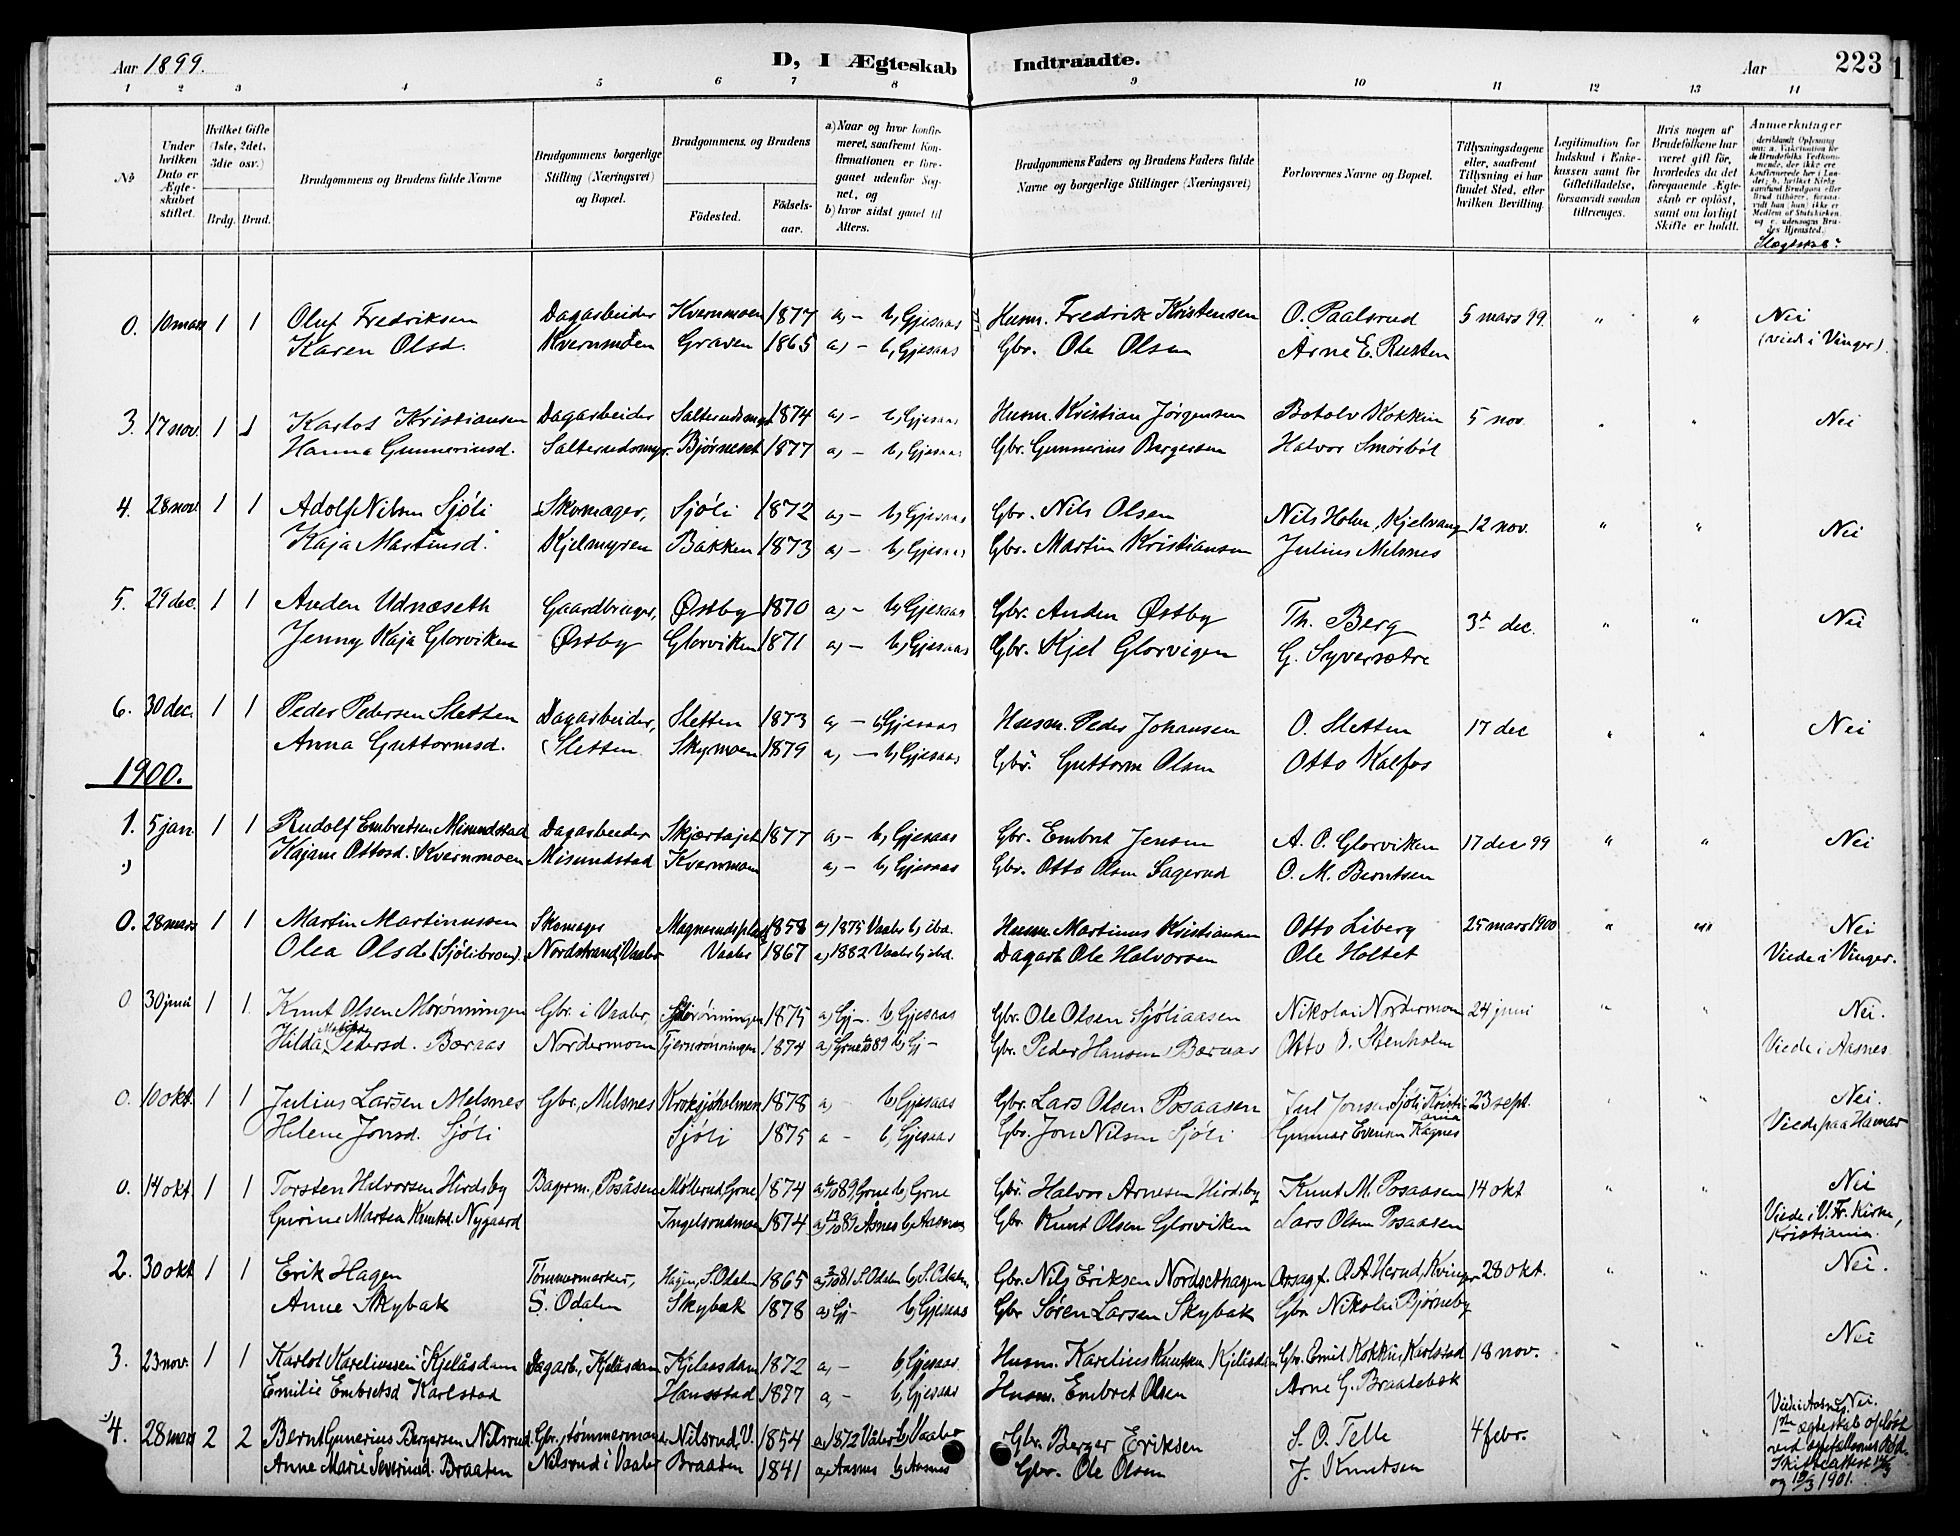 Aar 1899. D, I Ægteskab Indtraadte. Aar 223
1 2 3 4 5 6 7 8 9 10 11 12 13 14
No
Under hvilken Dato er Ægteskabet stiftet.
Hvilket Gifte (1ste, 2det, 3die osv.)
Brdg. Brud.
Brudgommens og Brudens fulde Navne
Brudgommens borgerlige Stilling (Næringsvei) og Bopæl.
Brudgommens og Brudens
Födested. Födselsaar.
a) Naar og hvor konfirmeret, saafremt Konfirmationen er foregaaet udenfor Sognet, og
b) hvor sidst gaaet til Alters.
Brudgommens Faders og Brudens Faders fulde Navne og borgerlige Stillinger (Næringsvei)
Forlovernes Navne og Bopæl.
Tillysningsdagene eller, saafremt Tillysning ei har fundet Sted, efter hvilken Bevilling.
Legitimation for Indskud i Enkekassen samt for Giftetilladelse, forsaavidt saadan tiltrænges.
Hvis nogen af Brudefolkene har været gift för, hvorledes da det foregaaende Ægteskab er oplöst, samt om lovligt Skifte er holdt.
Anmerkninger
Slægtskab?
0. 10 mars 1 1 Oluf Fredriksen Dagarbeider Kvernmoen 1877 a,- b, Gjesaas Husm. Fredrik Kristensen O. Paalsrud 5 mars 99. " " Nei
Karen Olsd. Kvernmoen Graven 1865 a,- b, Gjesaas Gbr. Ole Olsen Arne E. Rusten (viede i Vinger).
3. 17 nov. 1 1 Karlot Kristiansen Dagarbeider Salterudsmyr 1874 a,- b, Gjesaas Husm. Kristian Jørgensen Botolv Kokkin 5 nov. " " Nei
Hanna Gunneriusd. Salterudsmyr. Bjørneset 1877 a,- b, Gjesaas Gbr. Gunnerius Bergersen Halvor Smørbøl
4. 28 nov 1 1 Adolf Nilsen Sjöli Skomager, Sjöli 1872 a,- b, Gjesaas Gbr. Nils Olsen Nils Holm, Kjelvang 12 nov. " " Nei
Kaja Martinsd. Kjelmyren Bakken 1873 a,- b, Gjesaas Gbr. Martin Kristiansen Julius Melsnes
5. 29 dec. 1 1 Anden Udnæseth Gaardbruger, Østby 1870 a,- b, Gjesaas Gbr. Anden Østby Th. Berg 3die dec. " " Nei
Jenny Kaja Glorviken Østby Glorviken 1871 a,- b, Gjesaas Gbr. Kjel Glorvigen G. Syversætre
6. 30 dec. 1 1 Peder Pedersen Sletten Dagarbeider, Sletten 1873 a,- b, Gjesaas Husm. Peder Johansen O. Sletten 17 dec " " Nei
Anna Guttormsd. Sletten Skyrmoen 1879 a,- b, Gjesaas Gbr. Guttorm Olsen Otto Kalfos
1900.
1. 5 jan. 1 1 Rudolf Embretsen Misundstad Dagarbeider Skjærtajet 1877 a,- b, Gjesaas Gbr. Embret Jensen A. P. Glorviken 17 dec 99 " " Nei
Kajane Ottosd. Kvernmoen Misundstad Kvernmoen a,- b, Gjesaas Gbr. Otto Olsen Sagerud O. M. Berntsen
0. 28 mars 1 1 Martin Martinussen Skomager Magnerudsplads 1858 a, 1875 Vaaler b, ibd. Husm. Martinus Kristiansen Otto Liberg 25 mars 1900 " " Nei
Olea Olsd. (Sjölibroen). Nordstrand, Vaaler Vaaler 1867 a, 1882 Vaaler b, ibd. Dagarb Ole Halvorsen Ole Holtet Viede i Vinger.
0 30 juni 1 1 Knut Olsen Morönningen Gbr. i Vaaler, Morönningen 1875 a, Gj- b, Gjesaas Gbr. Ole Olsen Sjöliaasen Nikolai Nordermoen 24 juni " " Nei.
Hilda Mathea Pedersd. Baraas Nordermoen Tjernrönningen 1874 a, Grue 89 b, Gj- Gbr. Peder Hansen Baraas Otto O. Stenholm Viede i Aasnes.
0. 10 okt. 1 1 Julius Larsen Melsnes Gbr., Melsnes Kroksjøholmen 1878 a, - b, Gjesaas Gbr. Lars Olsen Posaasen Jul Jonsen Sjöli, Kristiania 23 sept. " " Nei.
Helene Jonsd. Sjöli Sjöli 1875 a - b, Gjesaas Gbr. Jon Nilsen Sjöli Gunnar Evensen Kagnes Viede paa Hamar
0. 14 okt. 1 1 Torsten Halvorsen Hirdsby Bagerm., Posåsen Möllerud, Grue 1874 a, 89, Grue b, Grue Gbr. Halvor Arnesen Hirdsby Knut M. Posaasen 14 okt " " Nei
Gurine Martea Knutsd. Nygaard Ingelsrudmoen 1874 a, 89 Åsnes b, Aasnes Gbr. Knut Olsen Glorviken Lars Olsen Posaasen Viede i V. Fr. Kirke, Kristiania.
2. 30 okt 1 1 Erik Hagen Tömmermerker, Hagen, S. Odalen 1865 a, 81 S. Odalen b, S. Odalen Gbr. Nils Eriksen Nordsethagen Orsagf. O. A. Herud, Kvinger 28 okt. " " Nei.
Anne Skybak S. Odalen Skybak 1878 a, Gj- b, Gjesaas Gbr Sören Larsen Skybak Gbr. Nikolai Bjørneby
3. 23 nov. 1 1 Karlot Kareliussen Kjelåsdam Dagarb., Kjelåsdam Kjelaasdam 1872 a, - b, Gjesaas. Husm. Karelius Knutsen Kjelåsdam Gbr. Emil Kokkin, Karlstad 18 nov. " " Nei
Emilie Embretsd Karlstad Hansstad 1877 a, - b, Gjesaas Husm. Embret Olsen Arne G. Braatebæk
4. 28 mars 2 2 Bernt Gunerius Bergersen Nilsrud. Gbr., tømmermand. Nilsrud, V. 1854 a, 1872 Våler b, Vaaler Gbr. Berger Eriksen S. O. Telle 4 febr. " " Viede i Aasnes. Nei.
Anne Marie Severinsd. Braaten Nilsrud i Vaaler Braaten 1841 a, Aasnes b, Aasnes Gbr. Ole Olsen J. Knutsen 1ste ægteskab opløst ved ægtefællernes død. Skifteattest og 19/3 1901.